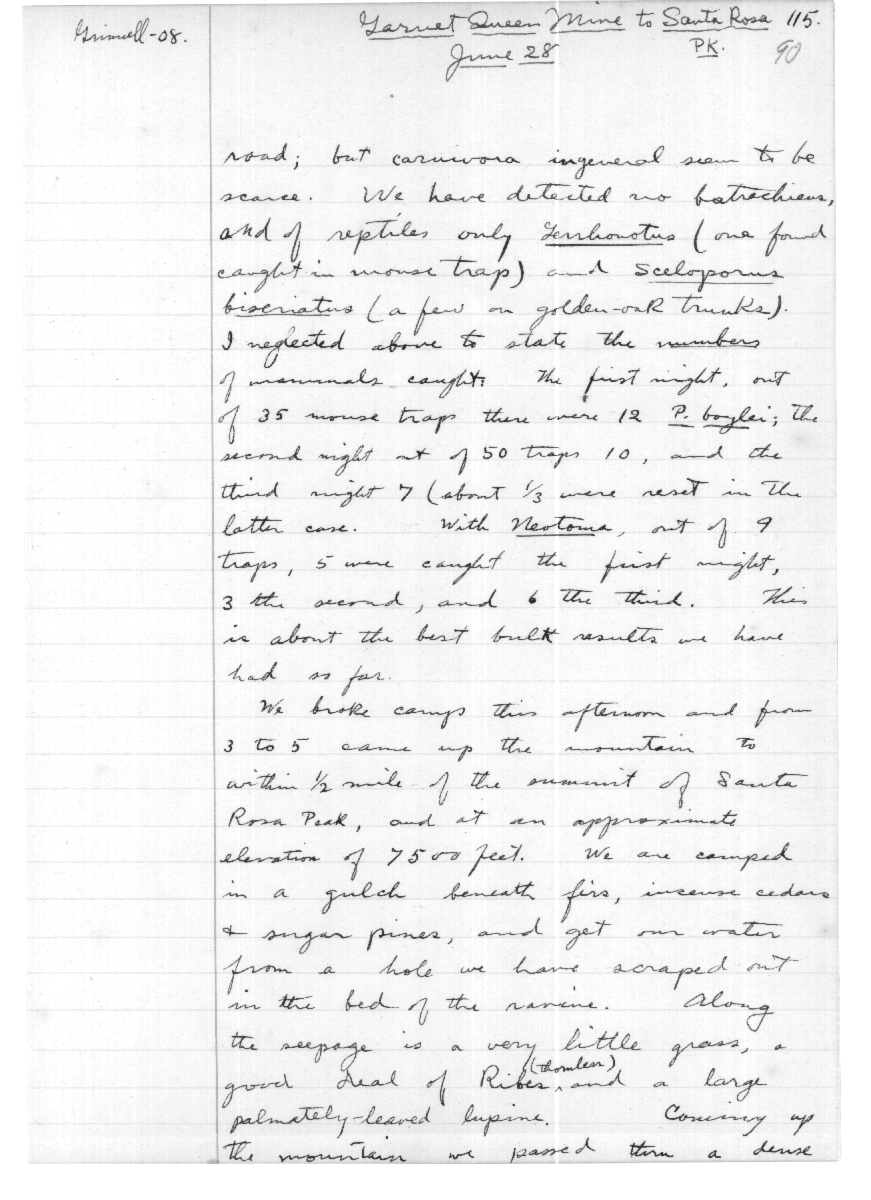 Grinnell-08.
Garnet Queen Mine to Santa Rosa 115.
June 28 PK. 90
road; but carnivora in general seem to be
scarce. We have detected no batrachians,
and of reptiles only Gerrhonotus (one found
caught in mouse trap) and Sceloporus
biseriatus (a few on golden-oak trunks).
I neglected above to state the numbers
of mammals caught: The first night, out
of 35 mouse traps there were 12 P. boylei; the
second night out of 50 traps 10, and the
third night 7 (about 1/3 were reset in the
latter case. With Neotoma, out of 9
traps, 5 were caught the first night,
3 the second, and 6 the third. This
is about the best bulk results we have
had so far.
We broke camp this afternoon and from
3 to 5 came up the mountain to
within 1/2 mile of the summit of Santa
Rosa Peak, and at an approximate
elevation of 7500 feet. We are camped
in a gulch beneath firs, incense cedars
& sugar pines, and get our water
from a hole we have scraped out
in the bed of the ravine. Along
the seepage is a very little grass, a
good deal of Ribes (thornless), and a large
palmately-leaved lupine. Coming up
the mountain we passed thru a dense